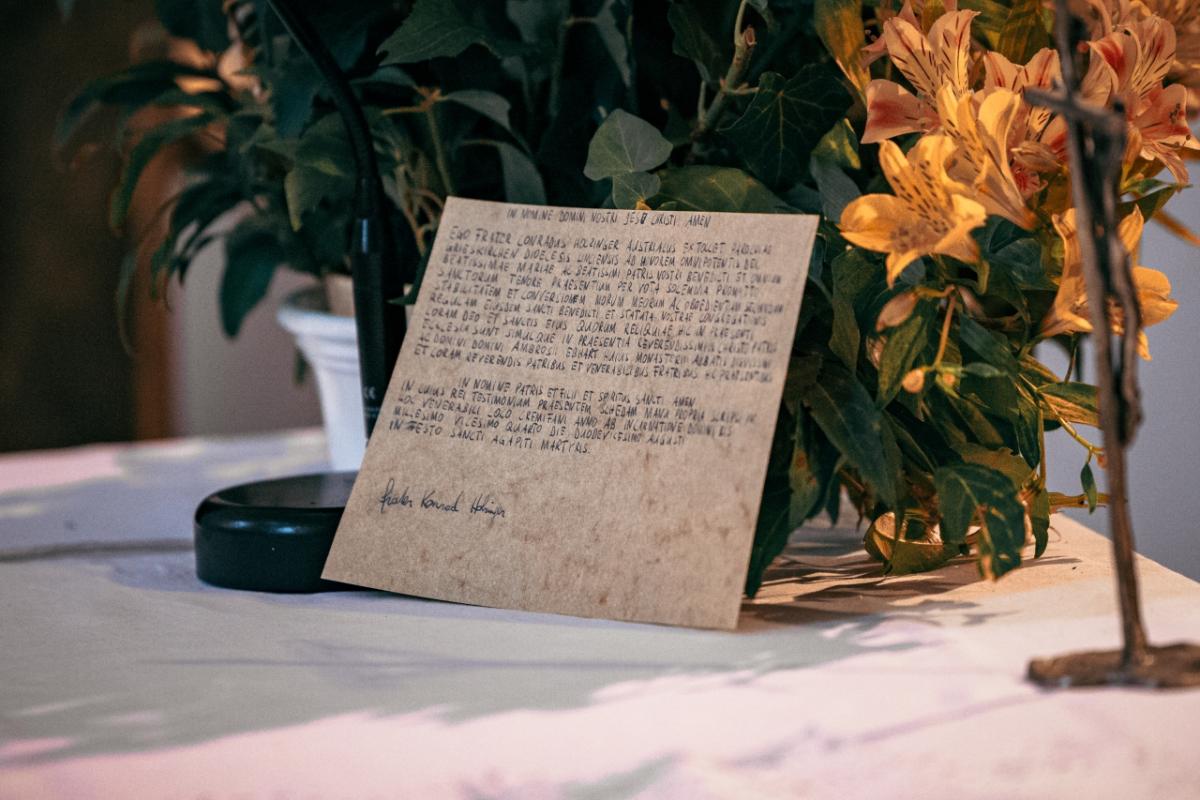 IN NOMINE DOMINI NOSTRI JESU CHRISTI. AMEN
EGO FRATER CONRADUS HOLZINGER AUSTRIACUS EX TOLLET PAROCHIAE
GRIESKIRCHEN DIOECESIS LINCENSIS AD HONOREM OMNIPOTENTIS DEI
BEATISSIMAE MARIAE AC BEATISSIMI PATRIS NOSTRI BENEDICTI ET OMNIUM
SANCTORUM TENORE PRAESENTIUM PER VOTA SOLEMNIA PROMITTO
STABILITATEM ET CONVERSIONEM MORUM MEORUM AC OBEDIENTIAM SECUNDUM
REGULAM EIUSDEM SANCTI BENEDICTI ET STATUTA NOSTRAE CONGREGATIONIS
CORAM DEO ET SANCTIS EIUS QUORUM RELIQUIAE HIC IN PRAESENTI
ECCLESIA SUNT SIMULQUE IN PRAESENTIA REVERENDISSIMI IN CHRISTO PATRIS
AC DOMINI DOMINI AMBROSII EBHART HUIUS MONASTERII ABBATIS
ET CORAM REVERENDIS PATRIBUS ET VENERABILIBUS FRATRIBUS HIC PRAESENTIBUS
IN NOMINE PATRIS ET FILII ET SPIRITUS SANCTI. AMEN
IN CUIUS REI TESTIMONIUM PRAESENTEM SCHEDAM MANU PROPRIA SCRIPSI IN
HOC VENERABILI LOCO CREMIFANI ANNO AB INCARNATIONE DOMINI BIS
MILLESIMO VICESIMO QUARTO DIE DUODEVICESIMO AUGUSTI
IN FESTO SANCTI AGAPITI MARTYRIS.
frater Konrad Holzinger